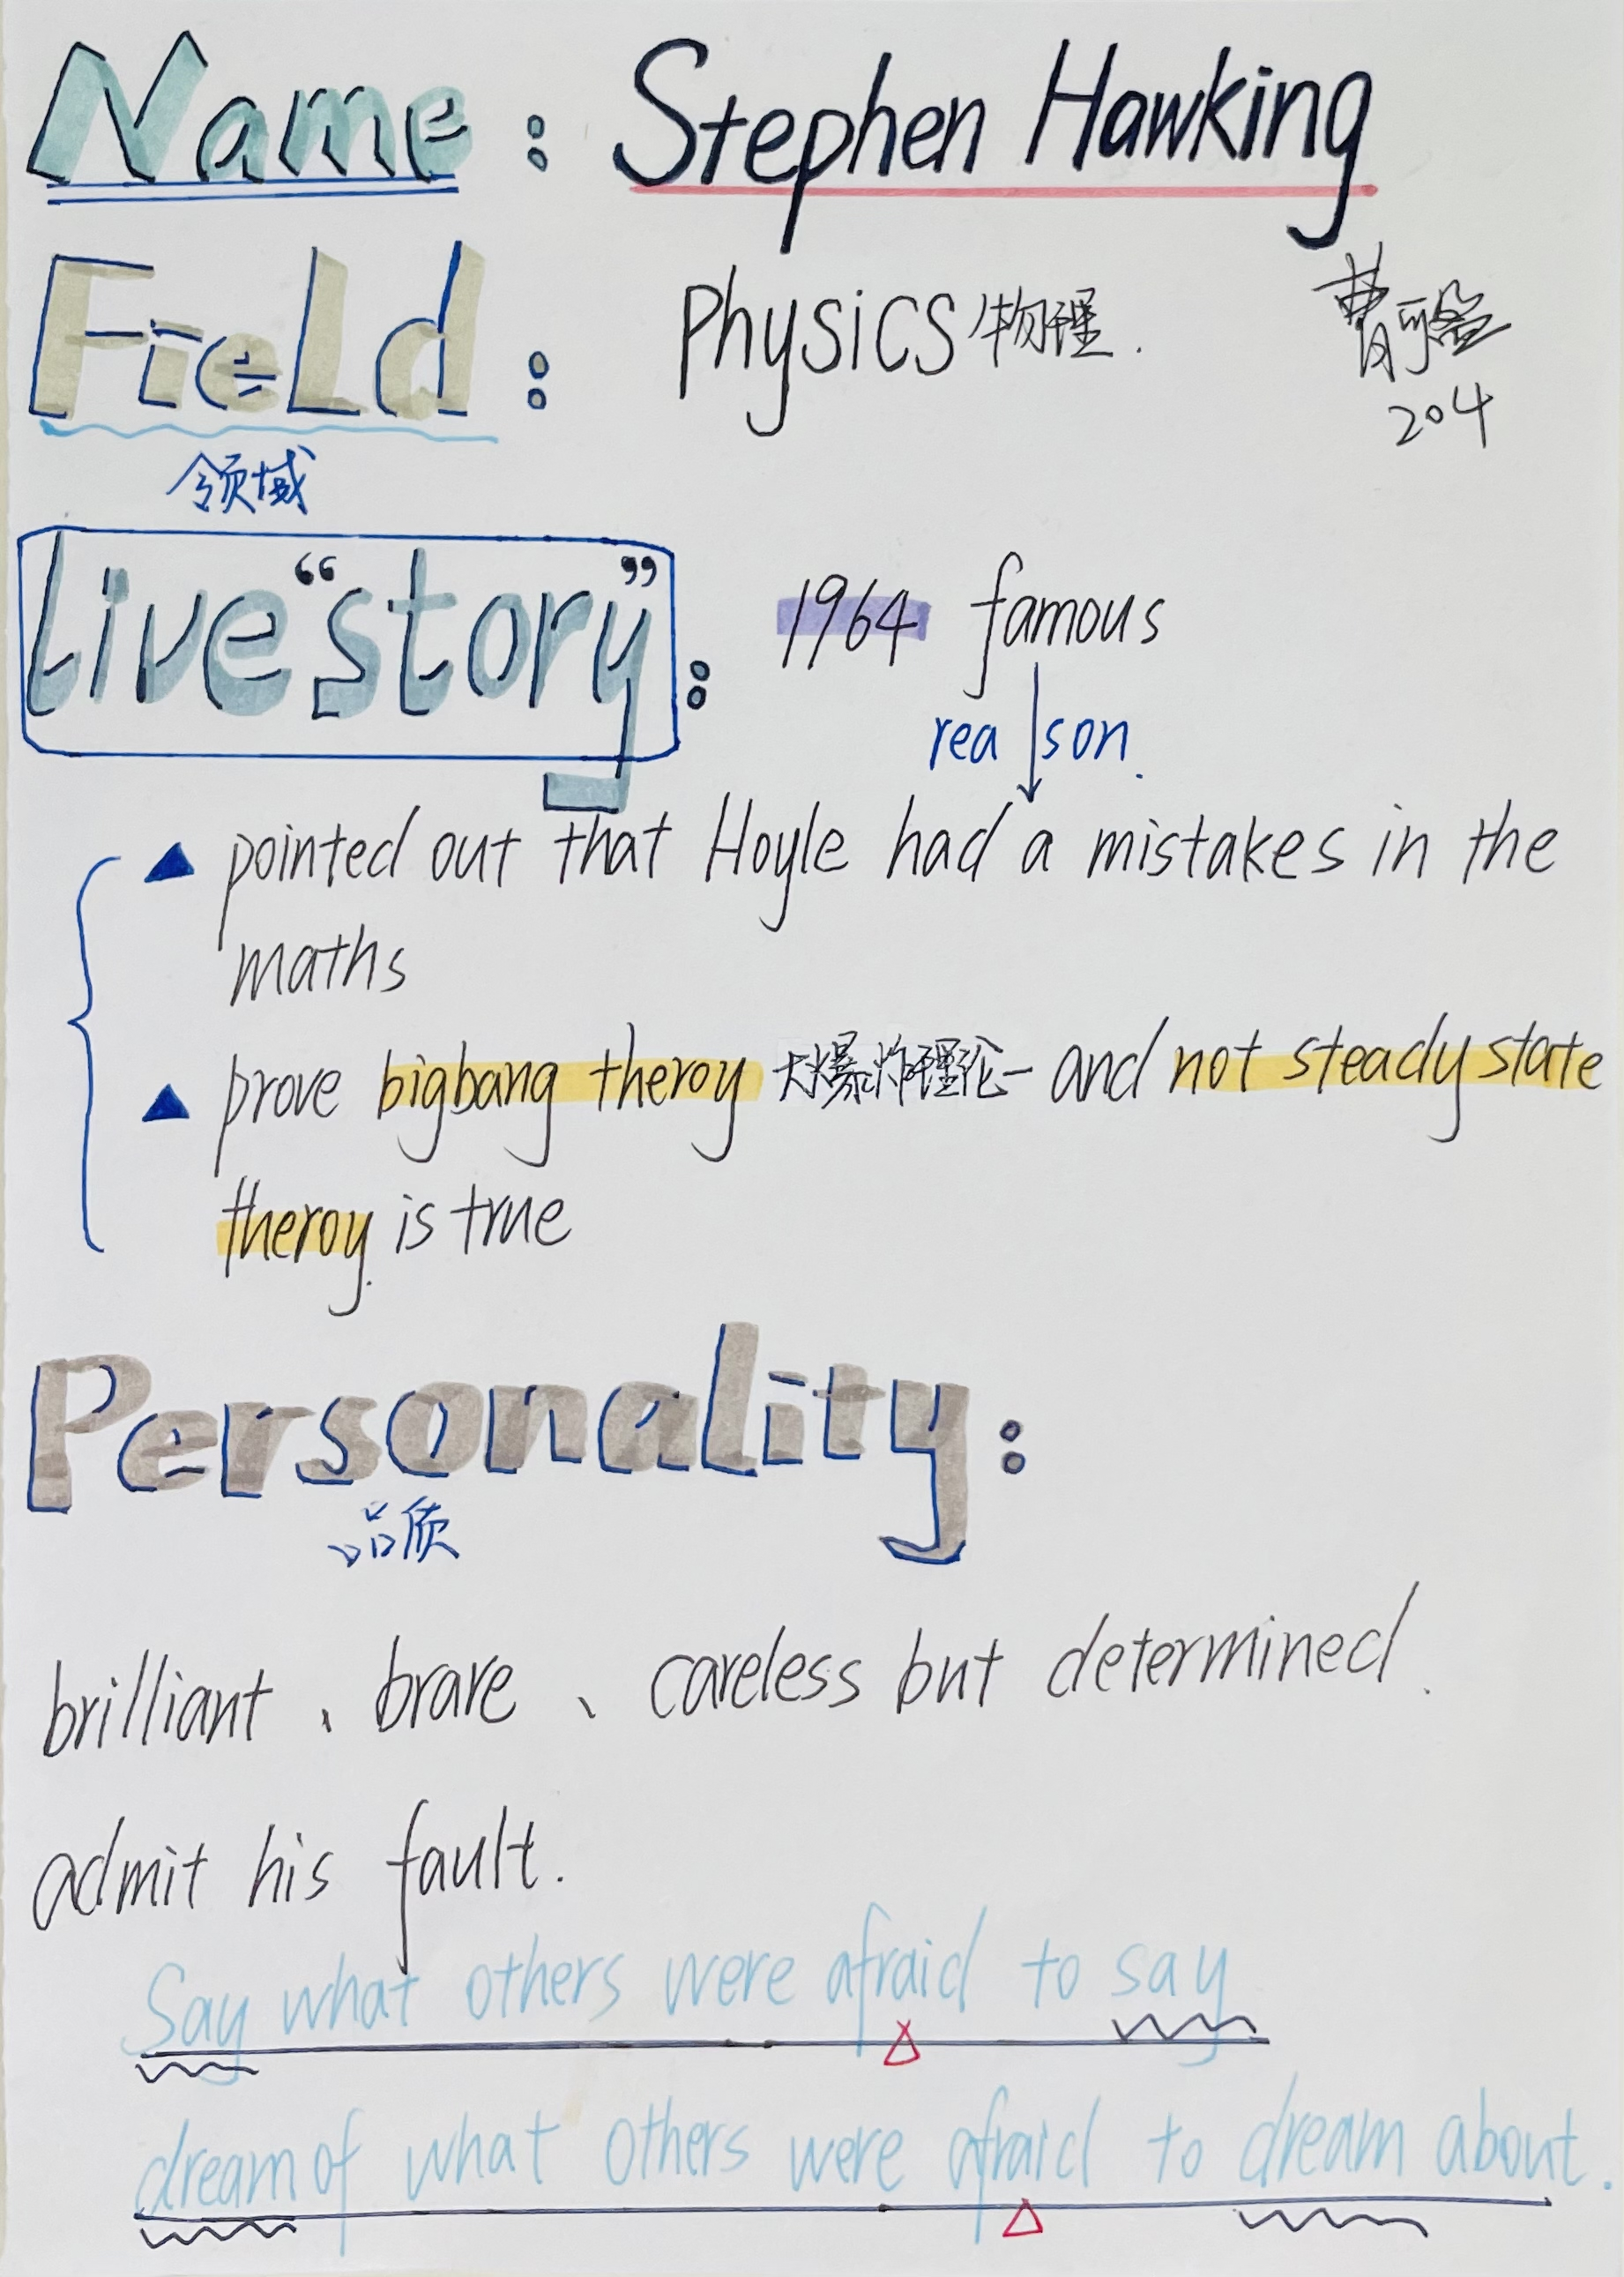 Name : Stephen Hawking
Field : Physics 物理.
204
领域
Live "story" : 1964 famous
reason.
▲ pointed out that Hoyle had a mistakes in the
maths
▲ prove bigbang theroy 大爆炸理论 and not steady state
theroy is true
Personality :
品质
brilliant、brave、careless but determined.
admit his fault.
Say what others were afraid to say
dream of what others were afraid to dream about.